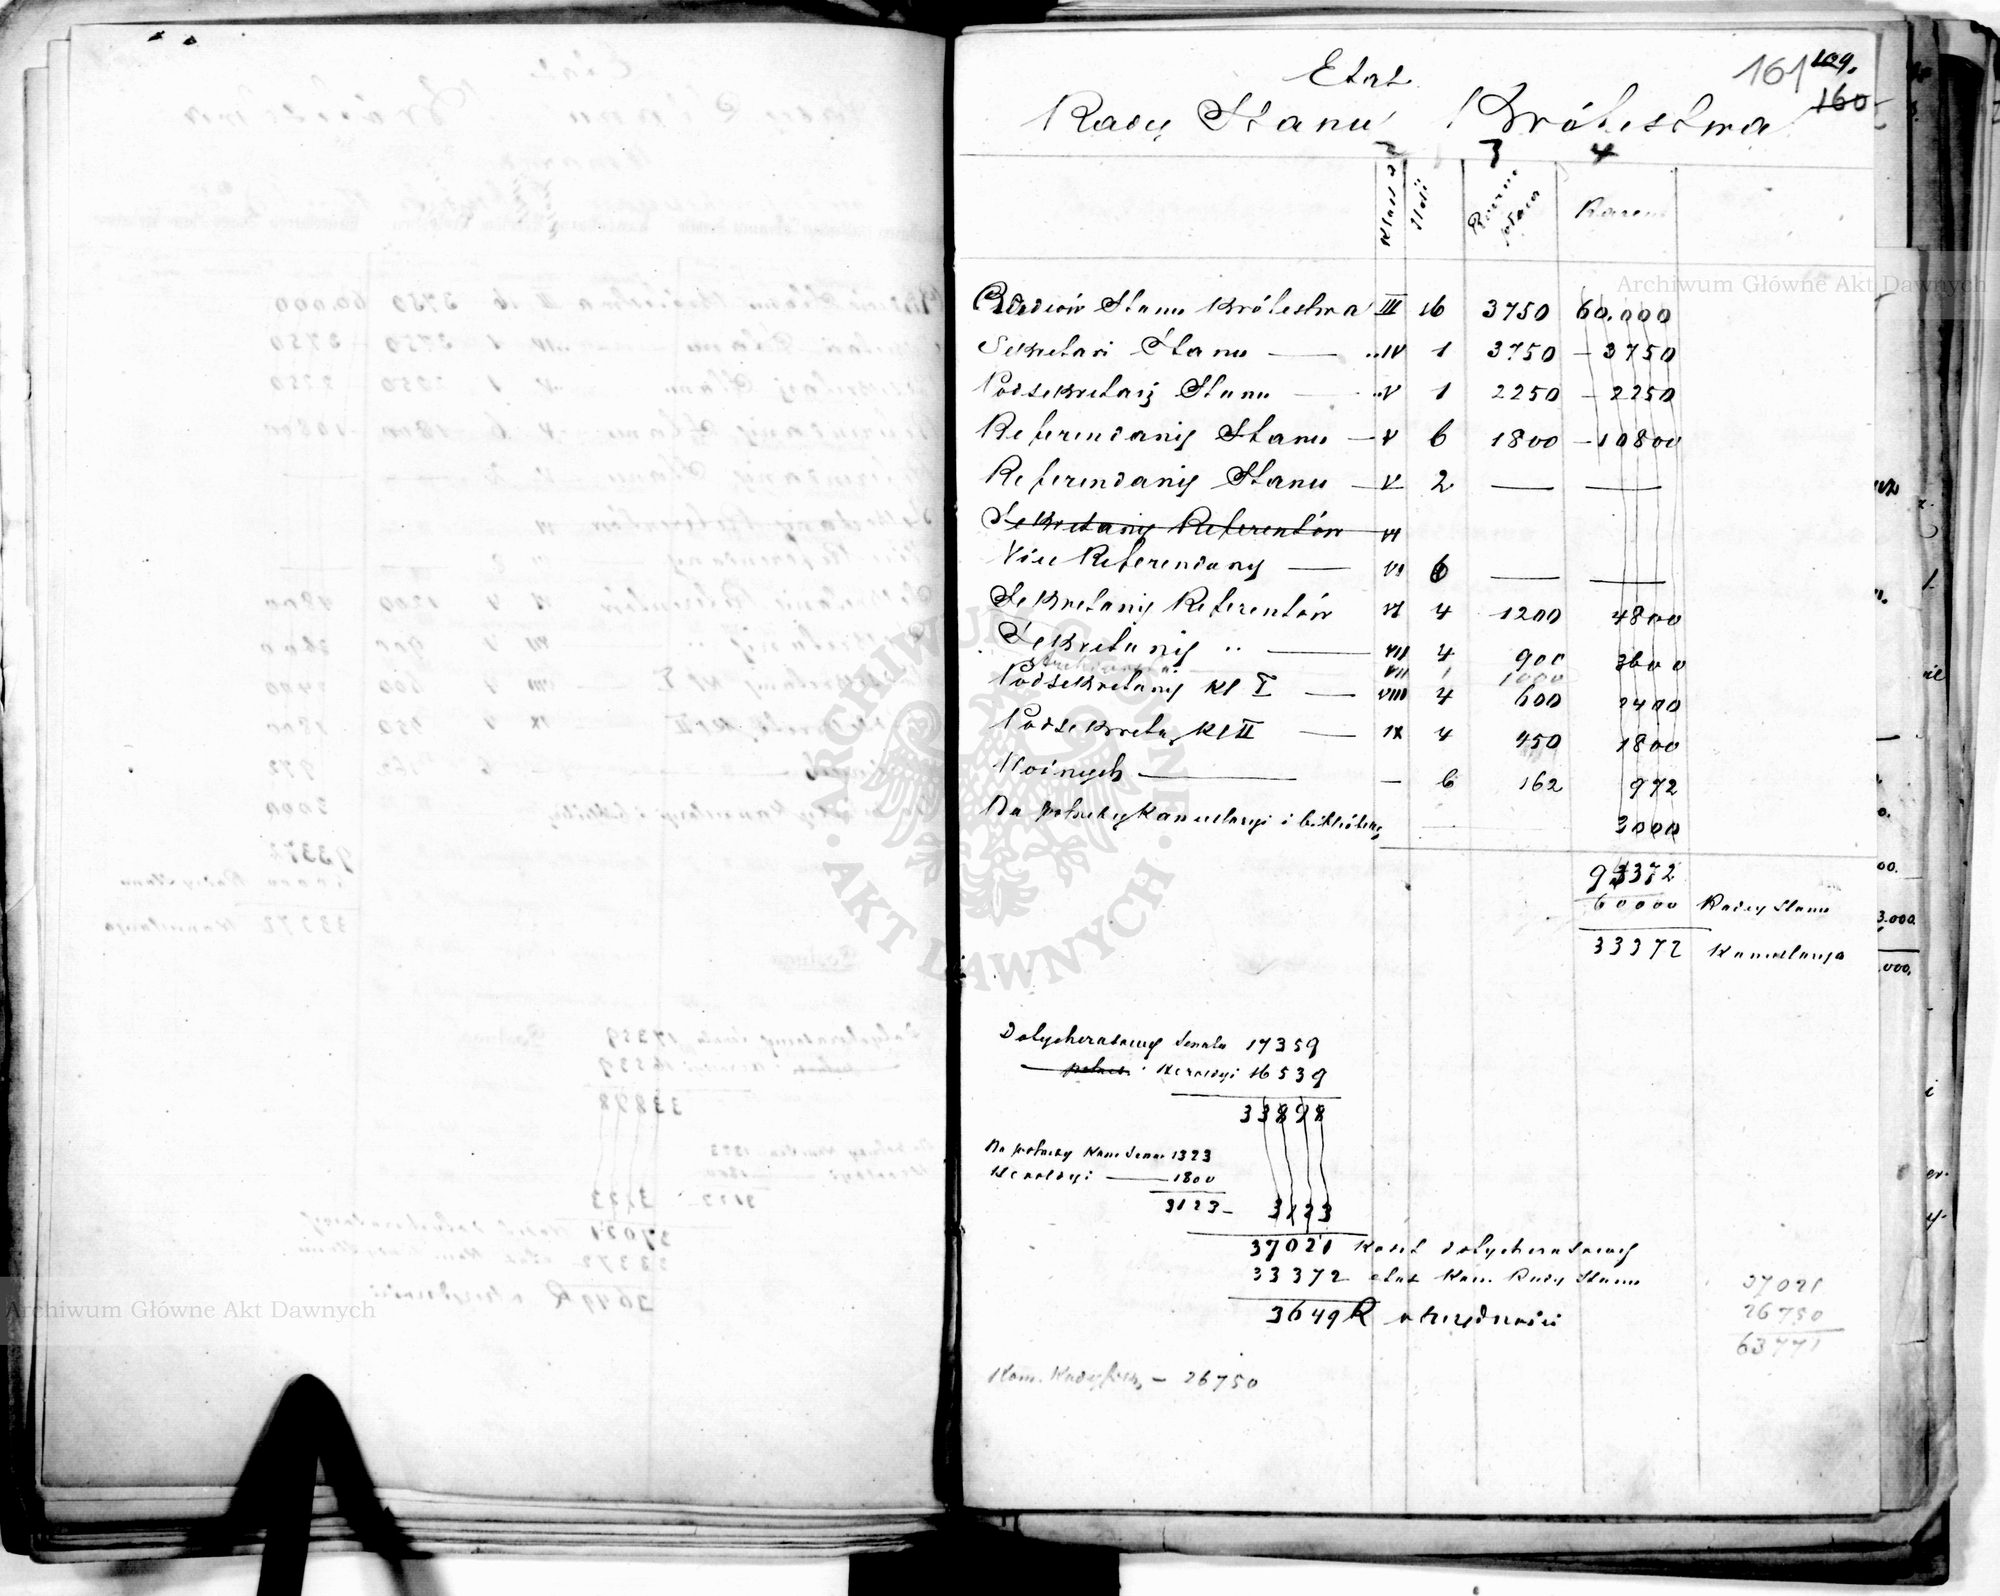 161 109.
160
Etat
Rady Stanu Królestwa
2 3 4
Klassa Ilość Roczna płaca Razem
Radców Stanu Królestwa III 16 3750 60.000
Sekretarz Stanu — IV 1 3750 — 3750
Podsekretarz Stanu — V 1 2250 — 2250
Referendarzy Stanu — V 6 1800 — 10800
Referendarzy Stanu — V 2 — —
Sekretarzy Referentów VI
Vice Referendarzy — VI 6 — —
Sekretarzy Referentów VI 4 1200 4800
Sekretarzy " — VII 4 900 3600
VII 1 1000
Podsekretarzy Kl I — VIII 4 600 2400
Podsekreta. Kl II — IX 4 450 1800
Woźnych — — 6 162 972
Na potrzeby Kancellaryi i biblioteki 3000
93372
60000 Rady Stanu
33372 Kancelarya
Dotychczasowy Senatu 17359
— i Heroldyi 16539
33898
Na potrzeby Kanc Senatu 1323
Heroldyi — 1800
3123 — 3123
37021 Koszt dotychczasowy
33372 etat Kan. Rady Stanu
3649 R oszczędności
37021
26750
63771
Kom. Rządzącej — 26750
Archiwum Główne Akt Dawnych
Archiwum Główne Akt Dawnych
ARCHIWUM GŁÓWNE
AKT DAWNYCH